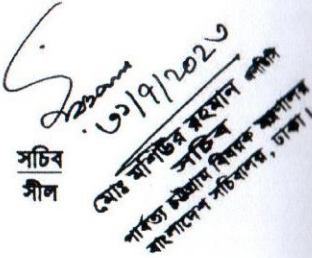 ৩১/৭/২০২৩
মোঃ মশিউর রহমান এনডিসি
সচিব
পার্বত্য চট্টগ্রাম বিষয়ক মন্ত্রণালয়
বাংলাদেশ সচিবালয়, ঢাকা।
সচিব
সীল